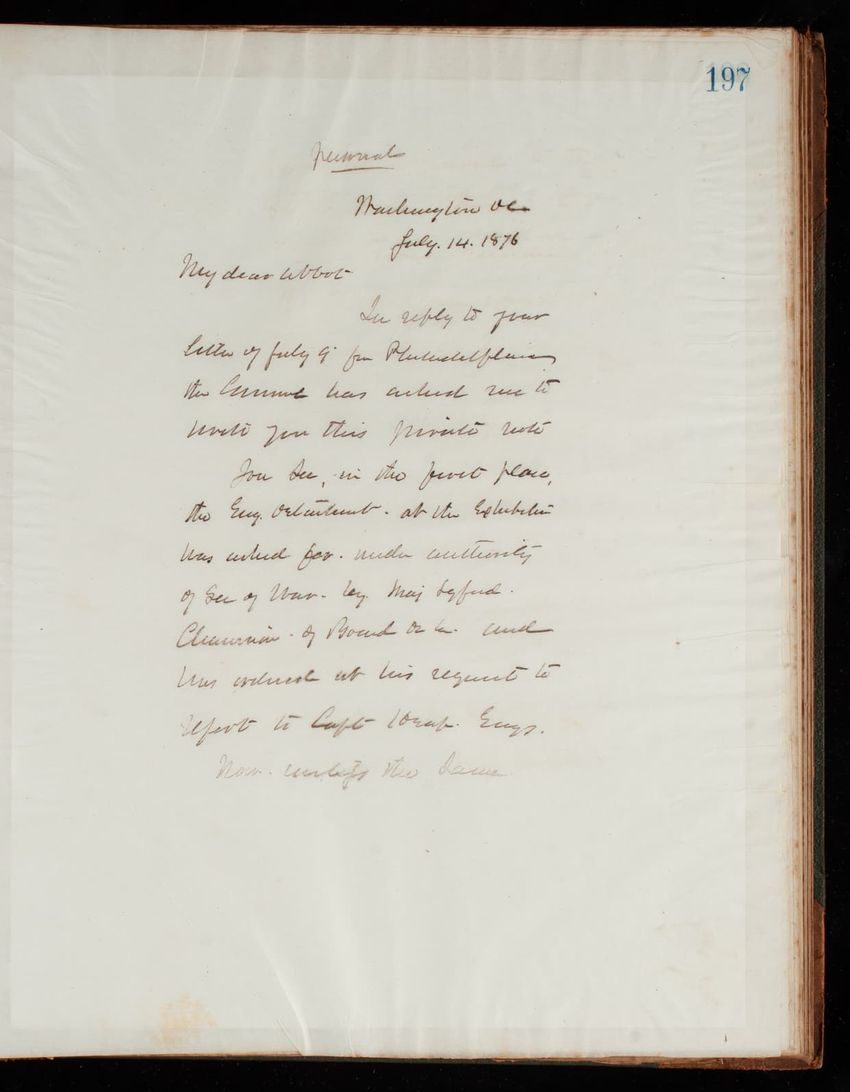 197
Personal
Washington DC
July. 14. 1876
My dear Abbot
In reply to your
letter of July 9 from Philadelphia
the General has asked me to
write you this private note
You See, in the first place,
the Eng. Detachment. at the Exhibition
was asked for. under authority
of Sec of War. by. Maj Lyford.
Chairman. of Board and
was ordered at his request to
report to Capt Engs.
Now. unless the Same